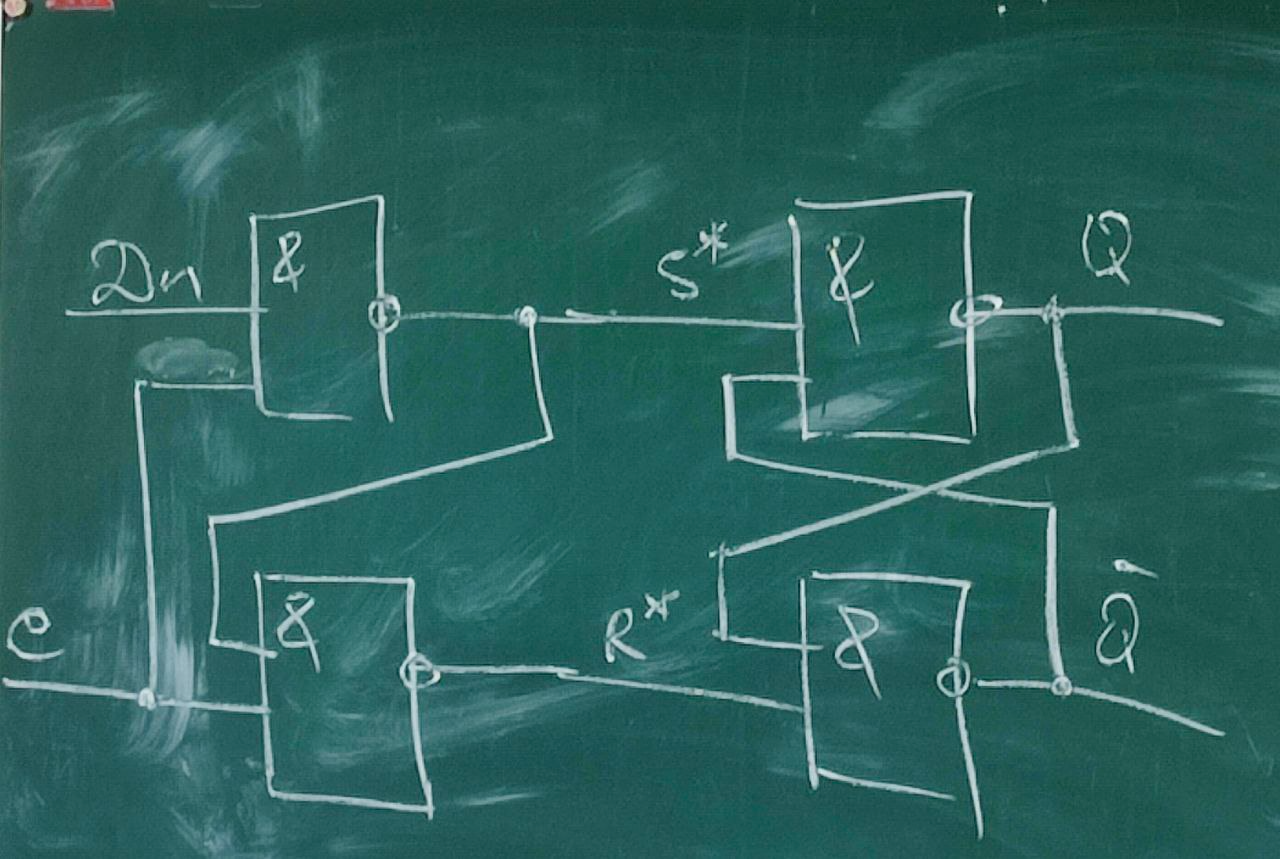 Dn
&
S*
&
Q
C
&
R*
&
Q̄